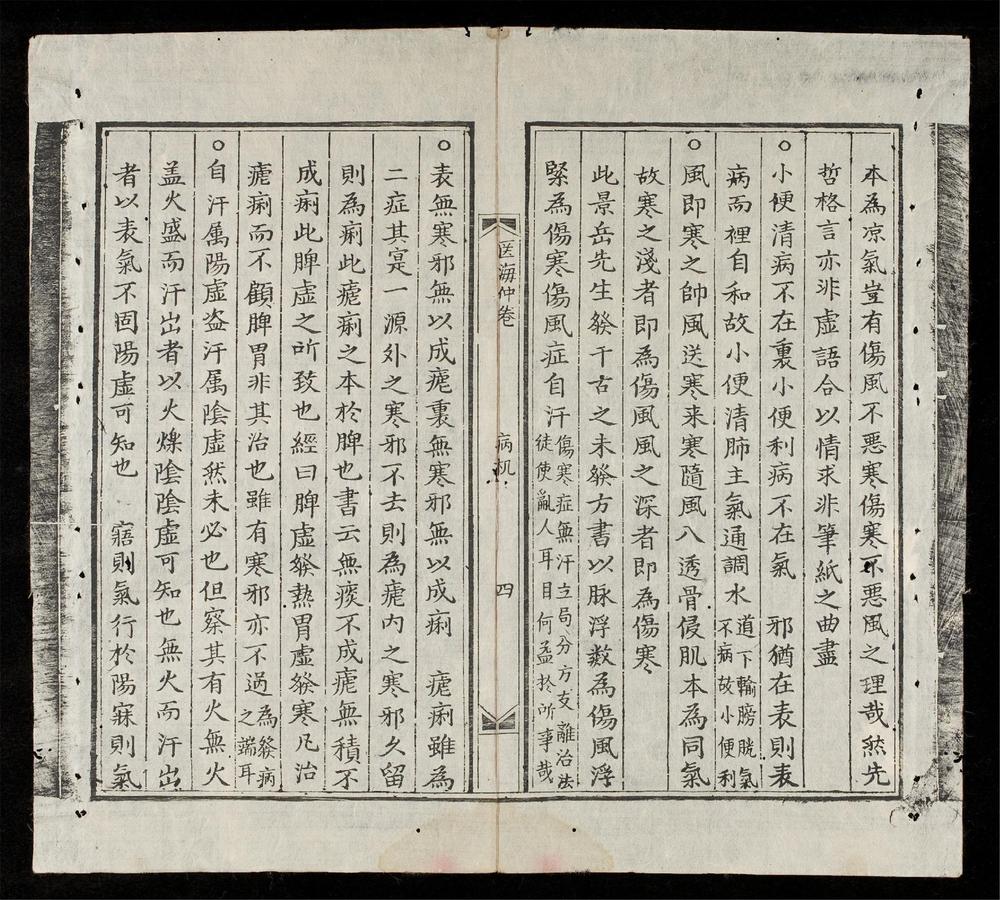 本為凉氣豈有傷風不惡寒傷寒不惡風之理哉然先
哲格言亦非虛語合以情求非筆紙之曲盡
○小便清病不在裏小便利病不在氣 邪猶在表則表
病而裡自和故小便清肺主氣通調水道下輸膀胱氣不病故小便利
○風即寒之帥風送寒来寒隨風八透骨侵肌本為同氣
故寒之淺者即為傷風風之深者即為傷寒
此景岳先生發千古之未發方書以脉浮数為傷風浮
緊為傷寒傷風症自汗傷寒症無汗立局分方支離治法徒使亂人耳目何益於所事哉
医海仲卷 病机 四
○表無寒邪無以成瘧裏無寒邪無以成痢 瘧痢雖為
二症其寔一源外之寒邪不去則為瘧内之寒邪久留
則為痢此瘧痢之本於脾也書云無痰不成瘧無積不
成痢此脾虛之所致也經曰脾虛發熱胃虛發寒凡治
瘧痢而不顧脾胃非其治也雖有寒邪亦不过為發病之端耳
○自汗属陽虛盗汗属陰虛然未必也但察其有火無火
盖火盛而汗出者以火爍陰陰虛可知也無火而汗出
者以表氣不固陽虛可知也 寤則氣行於陽寐則氣